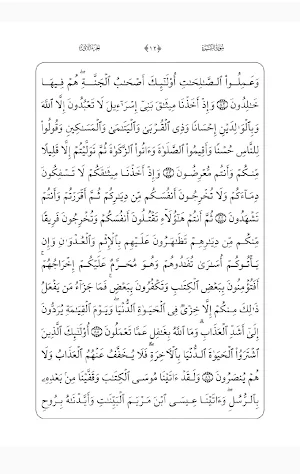 وَعَمِلُوا۟ ٱلصَّـٰلِحَـٰتِ أُو۟لَـٰٓئِكَ أَصْحَـٰبُ ٱلْجَنَّةِ ۖ هُمْ فِيهَا
خَـٰلِدُونَ ﴿٨٢﴾ وَإِذْ أَخَذْنَا مِيثَـٰقَ بَنِىٓ إِسْرَٰٓءِيلَ لَا تَعْبُدُونَ إِلَّا ٱللَّهَ
وَبِٱلْوَٰلِدَيْنِ إِحْسَانًا وَذِى ٱلْقُرْبَىٰ وَٱلْيَتَـٰمَىٰ وَٱلْمَسَـٰكِينِ وَقُولُوا۟
لِلنَّاسِ حُسْنًا وَأَقِيمُوا۟ ٱلصَّلَوٰةَ وَءَاتُوا۟ ٱلزَّكَوٰةَ ثُمَّ تَوَلَّيْتُمْ إِلَّا قَلِيلًا
مِّنكُمْ وَأَنتُم مُّعْرِضُونَ ﴿٨٣﴾ وَإِذْ أَخَذْنَا مِيثَـٰقَكُمْ لَا تَسْفِكُونَ
دِمَآءَكُمْ وَلَا تُخْرِجُونَ أَنفُسَكُم مِّن دِيَـٰرِكُمْ ثُمَّ أَقْرَرْتُمْ وَأَنتُمْ
تَشْهَدُونَ ﴿٨٤﴾ ثُمَّ أَنتُمْ هَـٰٓؤُلَآءِ تَقْتُلُونَ أَنفُسَكُمْ وَتُخْرِجُونَ فَرِيقًا
مِّنكُم مِّن دِيَـٰرِهِمْ تَظَـٰهَرُونَ عَلَيْهِم بِٱلْإِثْمِ وَٱلْعُدْوَٰنِ وَإِن
يَأْتُوكُمْ أُسَـٰرَىٰ تُفَـٰدُوهُمْ وَهُوَ مُحَرَّمٌ عَلَيْكُمْ إِخْرَاجُهُمْ ۚ
أَفَتُؤْمِنُونَ بِبَعْضِ ٱلْكِتَـٰبِ وَتَكْفُرُونَ بِبَعْضٍ ۚ فَمَا جَزَآءُ مَن يَفْعَلُ
ذَٰلِكَ مِنكُمْ إِلَّا خِزْىٌ فِى ٱلْحَيَوٰةِ ٱلدُّنْيَا ۖ وَيَوْمَ ٱلْقِيَـٰمَةِ يُرَدُّونَ
إِلَىٰٓ أَشَدِّ ٱلْعَذَابِ ۗ وَمَا ٱللَّهُ بِغَـٰفِلٍ عَمَّا تَعْمَلُونَ ﴿٨٥﴾ أُو۟لَـٰٓئِكَ ٱلَّذِينَ
ٱشْتَرَوُا۟ ٱلْحَيَوٰةَ ٱلدُّنْيَا بِٱلْـَٔاخِرَةِ ۖ فَلَا يُخَفَّفُ عَنْهُمُ ٱلْعَذَابُ وَلَا
هُمْ يُنصَرُونَ ﴿٨٦﴾ وَلَقَدْ ءَاتَيْنَا مُوسَى ٱلْكِتَـٰبَ وَقَفَّيْنَا مِنۢ بَعْدِهِۦ
بِٱلرُّسُلِ ۖ وَءَاتَيْنَا عِيسَى ٱبْنَ مَرْيَمَ ٱلْبَيِّنَـٰتِ وَأَيَّدْنَـٰهُ بِرُوحِ